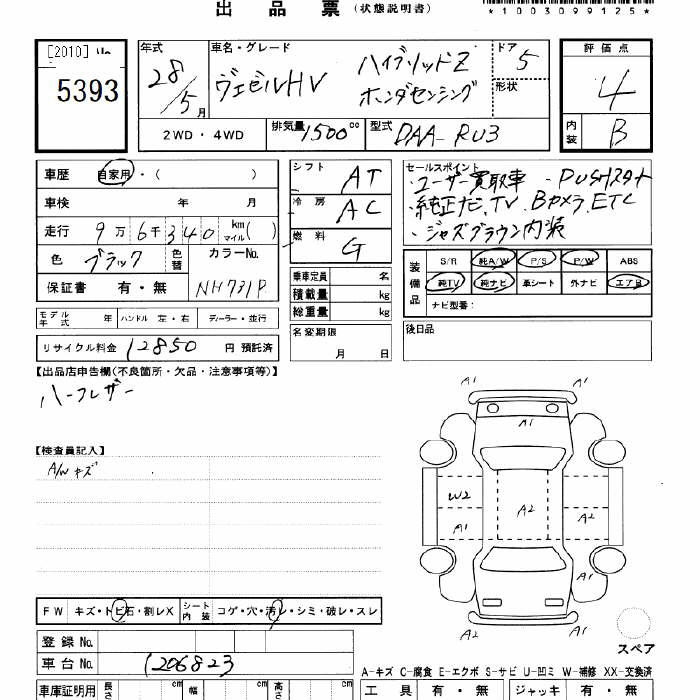 出品票（状態説明書）
*1003099125*
[2010]
5393
年式 車名・グレード ドア 評価点
28/5月 ヴェゼルHV ハイブリッドZ 5 4
ホンダセンシング 形状
2WD・4WD 排気量 1500 cc 型式 DAA-RU3 内装 B
車歴 自家用・（ ） シフト AT セールスポイント
車検 年 月 冷房 AC ・ユーザー買取車 ・PUSHスタート
走行 9万6千340 km マイル( ) ・純正ナビ、TV、Bカメラ、ETC
色 ブラック 色替 カラーNo. 燃料 G ・ジャズブラウン内装
保証書 有・無 NH731P 乗車定員 名 装備品 S/R 純A/W P/S P/W ABS
積載量 kg 純TV 純ナビ 革シート 外ナビ エアB
総重量 kg ナビ型番：
モデル年式 年 ハンドル 左・右 ディーラー・並行 名変期限 月 日 後日品
リサイクル料金 12850 円 預託済
【出品店申告欄(不良箇所・欠品・注意事項等)】
ハーフレザー
【検査員記入】
A/W キズ
A1 A1
A1
W2 A2 A2
A1
A1
A2 A1
スペア
FW キズ・トビ石・割レX シート内装 コゲ・穴・汚レ・シミ・破レ・スレ
登録No.
車台No. 1206823
A-キズ C-腐食 E-エクボ S-サビ U-凹ミ W-補修 XX-交換済
車庫証明用 長さ cm 幅 cm 高さ cm 工具 有・無 ジャッキ 有・無